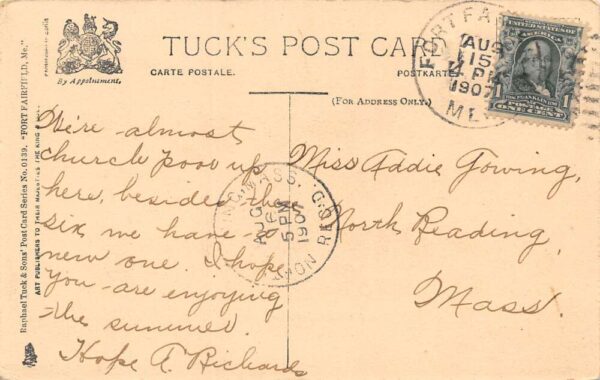 TUCK'S POST CARD
CARTE POSTALE.
POSTKARTE
(FOR ADDRESS ONLY.)
By Appointment.
Raphael Tuck & Sons' Post Card Series No. 0139. "FORT FAIRFIELD, Me."
ART PUBLISHERS TO THEIR MAJESTIES THE KING &
FORT FA
AUG
15
PM
1907
ME.
UNITED STATES OF
AMERICA
FRANKLIN
1 POSTAGE 1
ONE CENT
We're almost
church poor up
here, besides the
six we have a
new one. I hope
you are enjoying
the summer.
Hope A. Richards
Miss Addie Gowing,
North Reading,
Mass.
MASS. REC'D.
AUG
5 PM
1907
NO